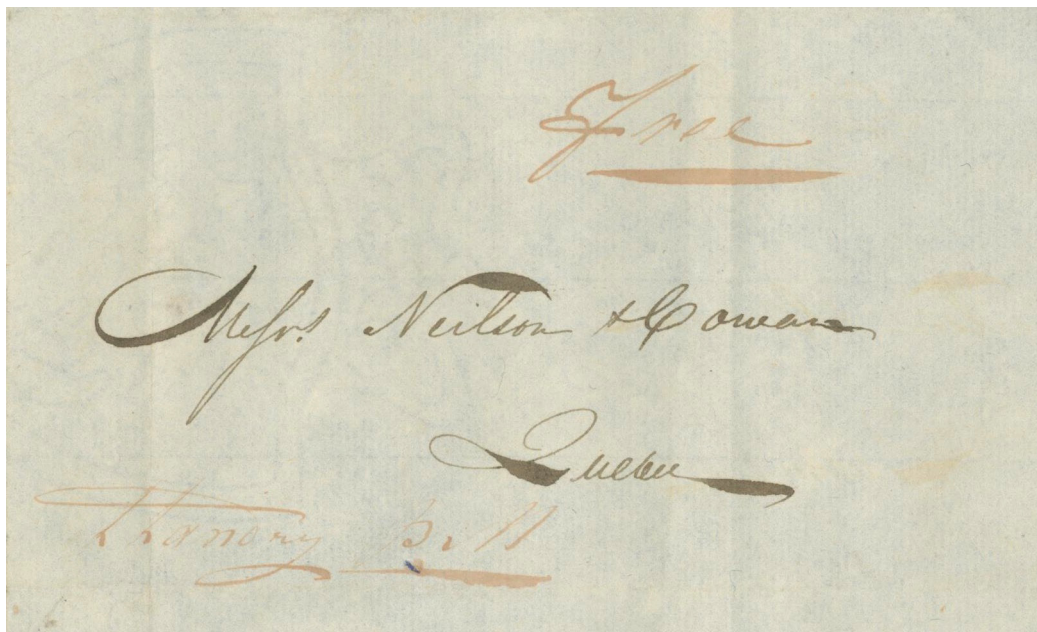 Free
Messrs. Neilson & Cowan
Quebec